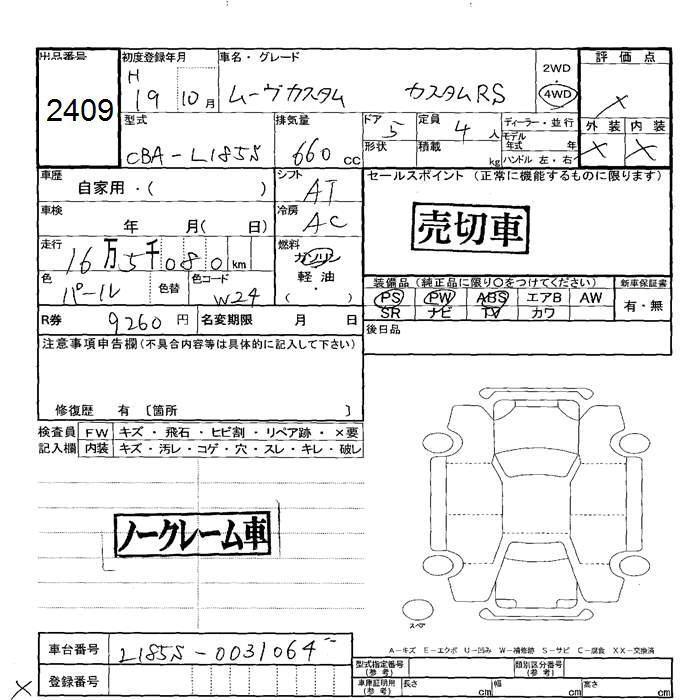 出品番号 初度登録年月 車名・グレード 2WD 評価点
2409 H 19 10月 ムーヴカスタム カスタムRS 4WD ×
型式 排気量 ドア 定員 ディーラー・並行 外装 内装
CBA-L185S 660cc 5 4人 モデル年式 年 × ×
形状 積載 kg ハンドル 左・右
車歴 シフト セールスポイント (正常に機能するものに限ります)
自家用・( ) AT
売切車
車検 冷房
年 月( 日) AC
走行 燃料
16万5千080km ガソリン
軽油
( )
色 色替 色コード 装備品 (純正品に限り○をつけてください) 新車保証書
パール W24 PS PW ABS エアB AW 有・無
SR ナビ TV カワ
R券 9260円 名変期限 月 日 後日品
注意事項申告欄(不具合内容等は具体的に記入して下さい)
修復歴 有 〔箇所 〕
検査員 FW キズ・飛石・ヒビ割・リペア跡・×要
記入欄 内装 キズ・汚レ・コゲ・穴・スレ・キレ・破レ
ノークレーム車
スペア
A-キズ E-エクボ U-凹み W-補修跡 S-サビ C-腐食 XX-交換済
車台番号 L185S-0031064
登録番号
×
型式指定番号(参考) 類別区分番号(参考)
車庫証明用(参考) 長さ cm 幅 cm 高さ cm